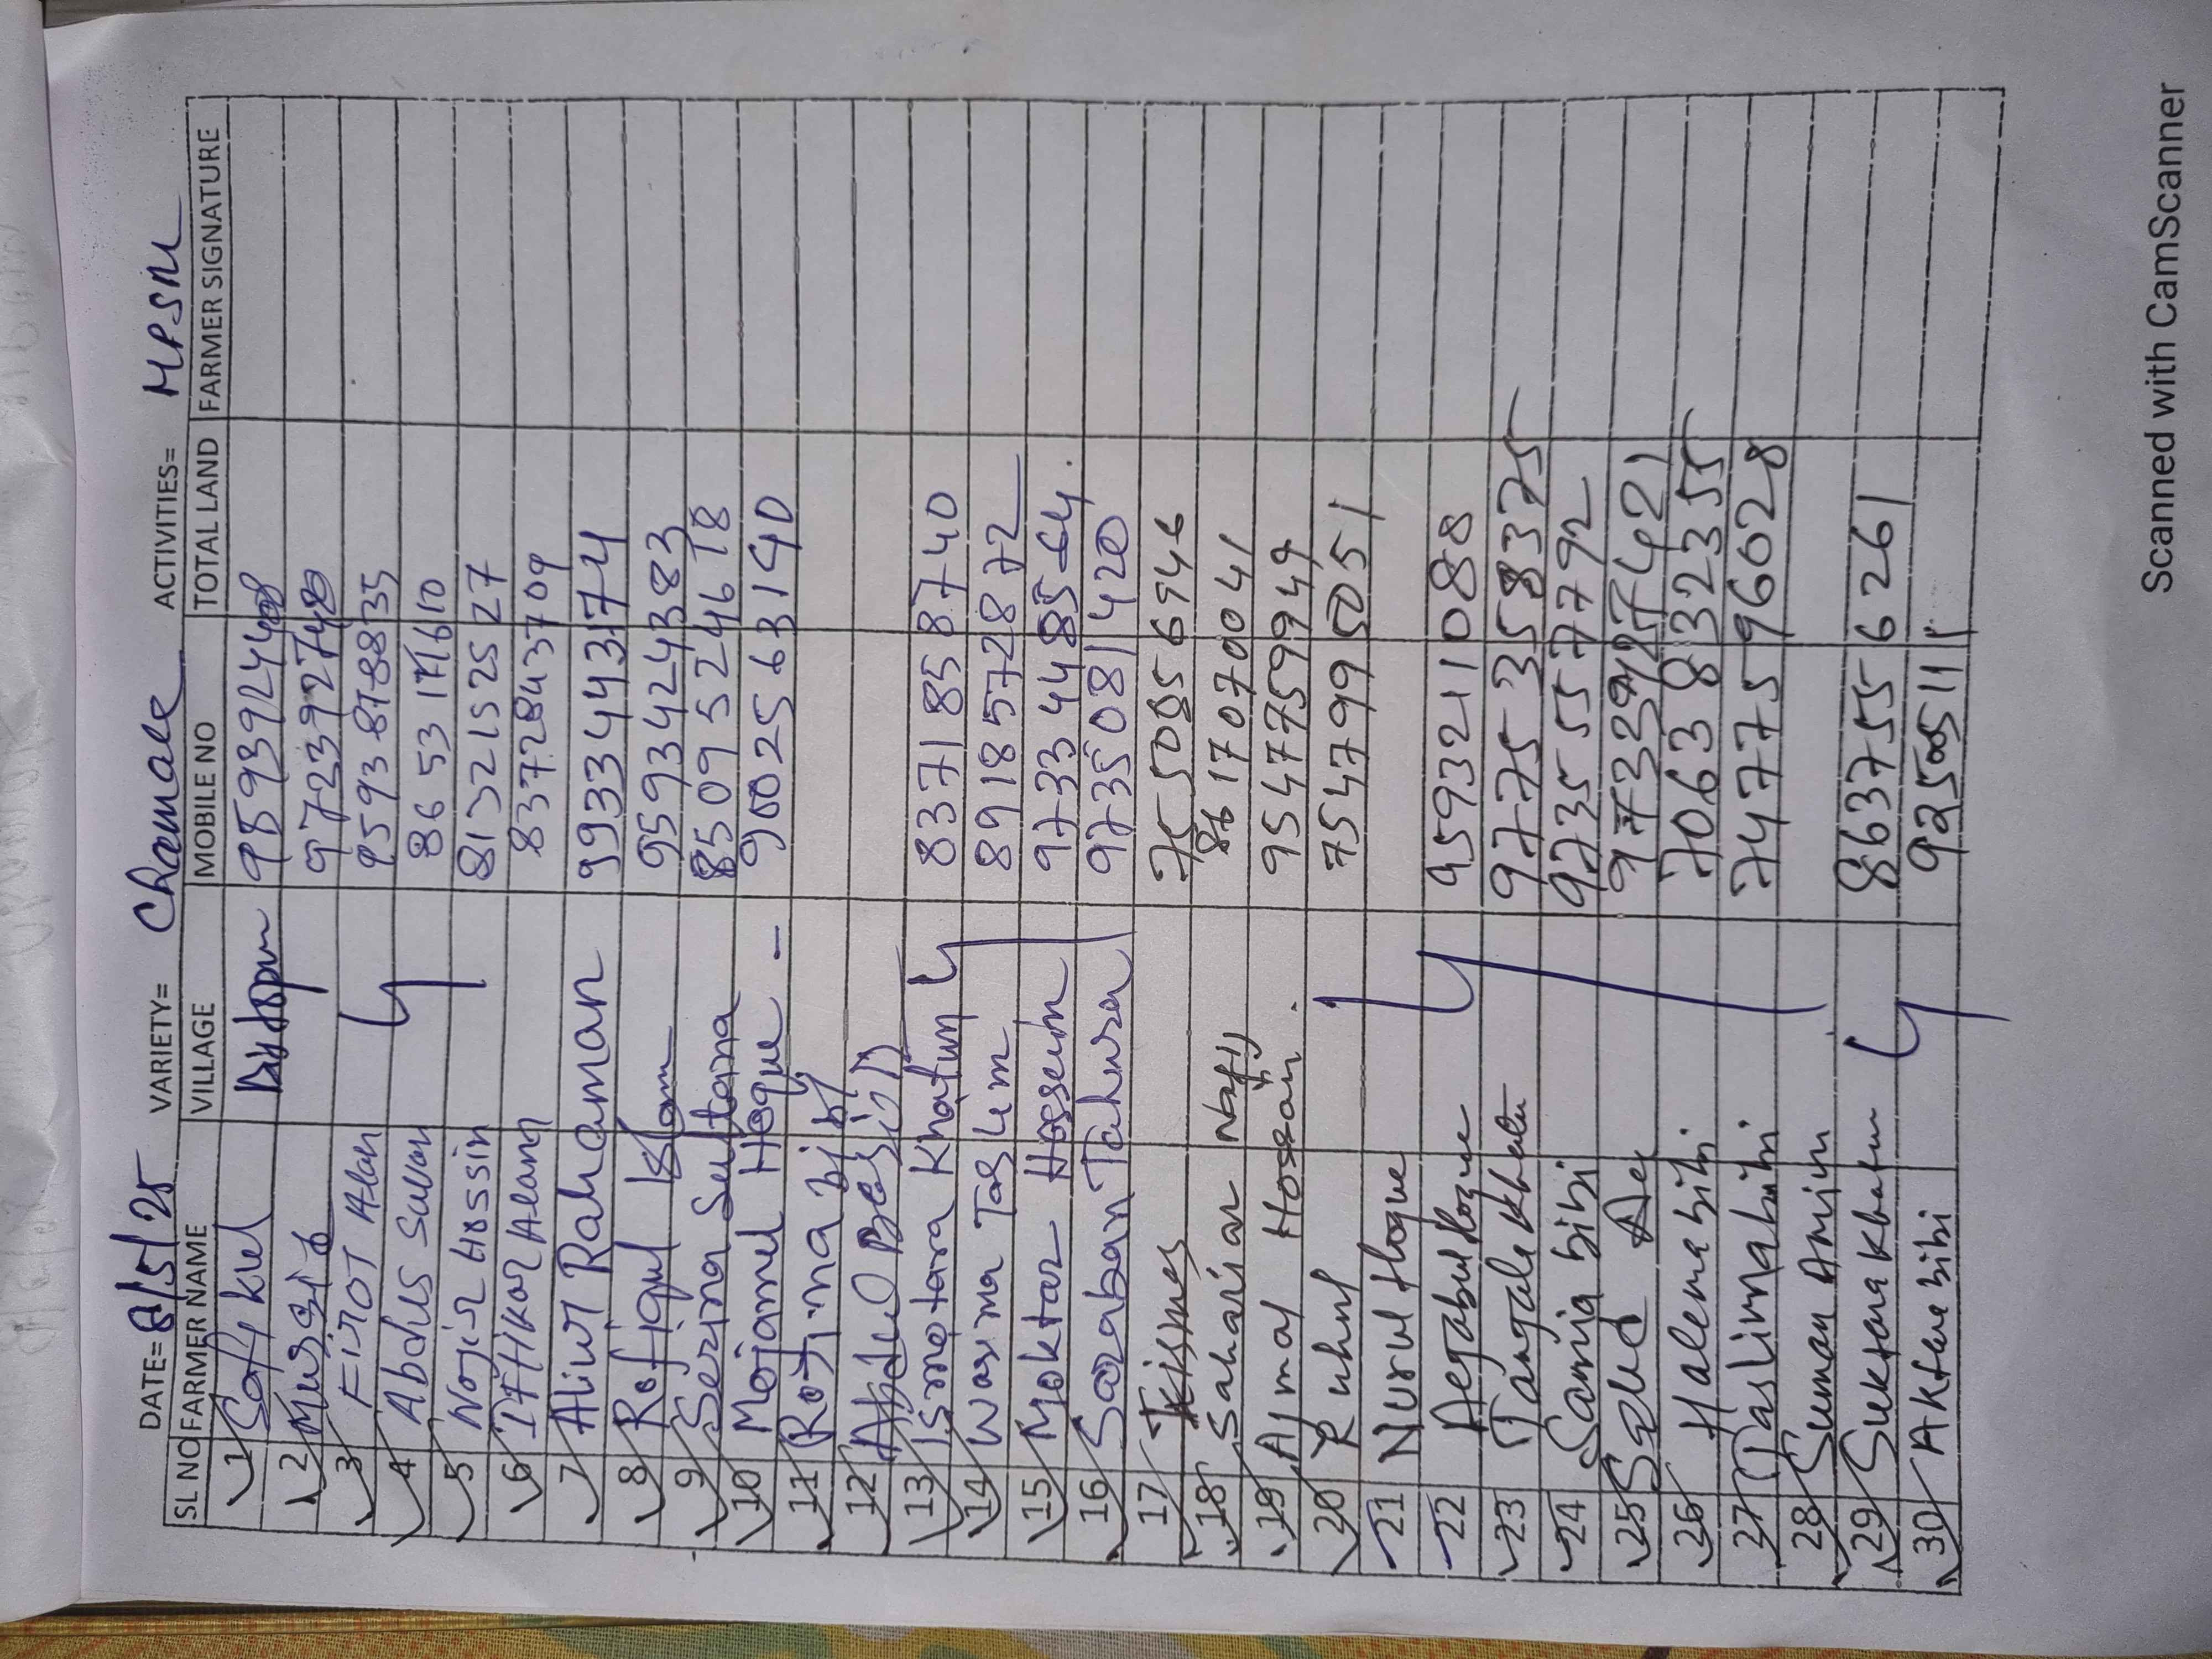 DATE= 8/5/25 VARIETY= Chamak ACTIVITIES= MPSM
SL NO FARMER NAME VILLAGE MOBILE NO TOTAL LAND FARMER SIGNATURE
1 Safikul
2 Mursid
3 Firot Alam 9593878835
4 Abdus Sallam
5 Nojir Hossin
6 Iftikar Alam 8372843709
7 Aliur Rahaman 9933443174
8 Rofiqul Islam 9593424383
9 Serina Sultana 8509524618
10 Mojamel Hoque - 9002563140
11 Rojina bibi
12 Abdul Basir
13 Ismotara Khatun 8371858740
14 Wasima Taslim 8918572872
15 Moktar Hossein 9733448564
16 Saraban Tahura 9735081420
17 Kismat 7550856946
18 Saharian 8617070041
19 Ajmal Hossain. 9547759949
20 Ruhul 7547995051
21 Nurul Hoque
22 Aejabul Hoque 9593211088
23 Tangala Khatun 9775358375
24 Samia bibi 9735557792
25
26 Halema bibi 7063832355
27 Taslima bibi 7477596028
28 Suman Amin
29 Suktara Khatun 8637556261
30 Aktera bibi
Scanned with CamScanner